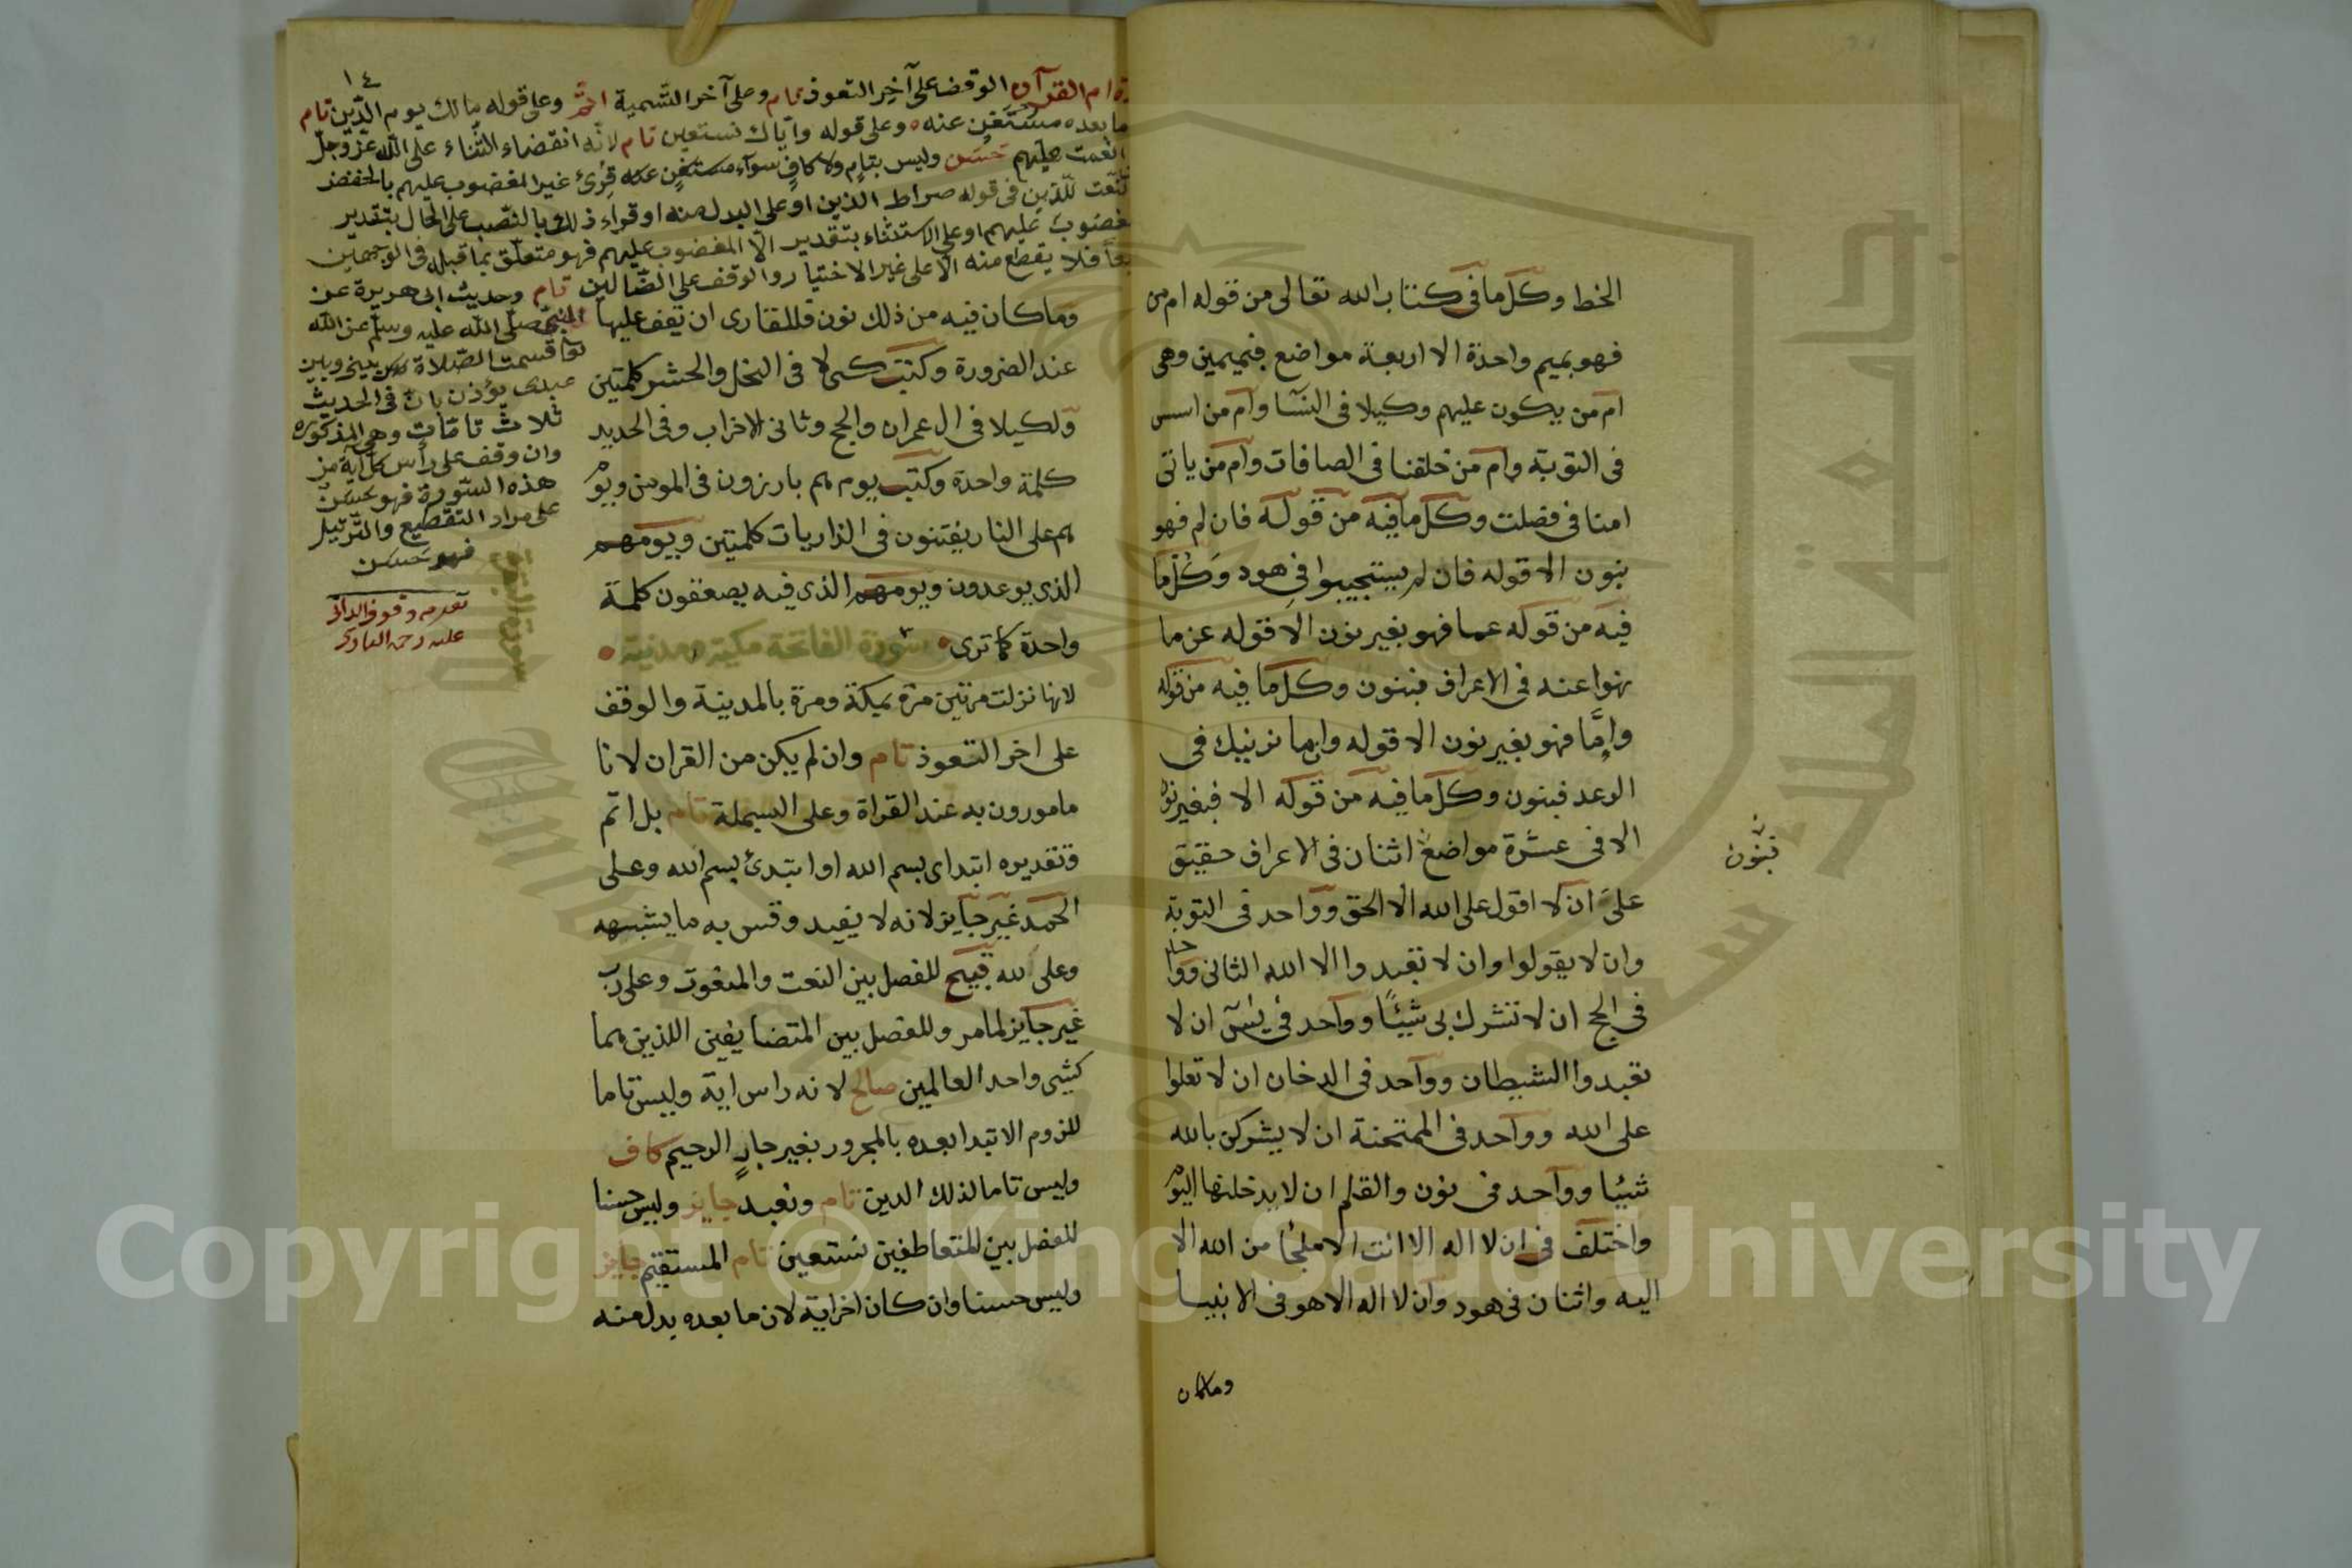 الخط وكل ما فى كتاب الله تعالى من قوله ام من
فهو بميم واحدة الا اربعة مواضع فبميمين وهى
ام من يكون عليهم وكيلا فى النسآ وام من اسس
فى التوبة وام من خلقنا فى الصافات وام من ياتى
امنا فى فصلت وكل ما فيه من قوله فان لم فهو
بنون الا قوله فان لم يستجيبوا فى هود وكل ما
فيه من قوله عما فهو بغير نون الا قوله عن ما
نهوا عنه فى الاعراف فبنون وكل ما فيه من قوله
وامَّا فهو بغير نون الا قوله وان ما نرينك فى
الرعد فبنون وكل ما فيه من قوله الا فبغير نون
الا فى عشرة مواضع اثنان فى الاعراف حقيق
فبنون
على ان لا اقول على الله الا الحق وواحد فى التوبة
وان لا يقولوا وان لا تعبدوا الا الله الثانى وواحد
فى الحج ان لا تشرك بى شيئًا وواحد فى يسٓ ان لا
تعبدوا الشيطان وواحد فى الدخان ان لا تعلوا
على الله وواحد فى الممتحنة ان لا يشركن بالله
شيئا وواحد فى نون والقلم ان لا يدخلنها اليوم
واختلف فى ان لا اله الا انت الا ملجئا من الله الا
اليه واثنان فى هود وان لا اله الا هو فى الانبيا
وما كان
١٤
ة ام القرآن الوقف على آخر التعوذ تمام وعلى آخر التّسمية اتمّ وعلى قوله مالك يوم الدّين تام
ما بعده مستغن عنه وعلى قوله واياك نستعين تام لانّه انقضاء الثّناء على الله عزّ وجلّ
انعمت عليهم حسن وليس بتام ولا كافٍ سوآء مستغن عنه قرئ غير المغضوب عليهم بالخفض
النّعت للّذين فى قوله صراط الذين او على البدل منه او قراء ذلك بالنّصب على الحال بتقدير
مغضوب عليهم او على الاستثناء بتقدير الّا المغضوب عليهم فهو متعلّق بما قبله فى الوجهين
معًا فلا يقطع منه الا على غير الاختيار والوقف على الضّالين تام وحديث ابى هريرة عن
النبى صلّى الله عليه وسلّم عن الله
تعا قسمت الصّلاة بينى وبين
عبدى يؤذن بانّ فى الحديث
ثلاث تامّات وهى المذكورة
وان وقف على رأس كل آية من
هذه السّورة فهو حسن
على مراد التقطيع والتّرتيل
فهو حسن
وقوف الدانى
عليه رحمة البارى
سورة البقرة
وما كان فيه من ذلك نون فللقارى ان يقف عليها
عند الضرورة وكتب كى لا فى النحل والحشر كلمتين
ولكيلا فى ال عمران والحج وثانى الاحزاب وفى الحديد
كلمة واحدة وكتب يوم هم بارزون فى المومن ويوم
هم على النار يفتنون فى الذاريات كلمتين ويومهم
الذى يوعدون ويومهم الذى فيه يصعقون كلمة
واحدة كما ترى سورة الفاتحة مكية مدنية
لانها نزلت مرتين مرة بمكة ومرة بالمدينة والوقف
على اخر التعوذ تام وان لم يكن من القران لانا
مامورون به عند القراة وعلى البسملة تام بل اتم
وتقديره ابتداى بسم الله او ابتدئ بسم الله وعلى
الحمد غير جايز لانه لا يفيد وقس به ما يشبهه
وعلى لله قبيح للفصل بين النعت والمنعوت وعلى رب
غير جايز لما مر وللفصل بين المتضايفين اللذين هما
كشيى واحد العالمين صالح لانه راس اية وليس تاما
للزوم الابتدا بعده بالمجرور بغير جارٍ الرحيم كاف
وليس تاما لذلك الدين تام ونعبد جايز وليس حسنا
للفصل بين المتعاطفين نستعين تام المستقيم جايز
وليس حسنا وان كان اخر اية لان ما بعده بدل منه
Copyright © King Saud University